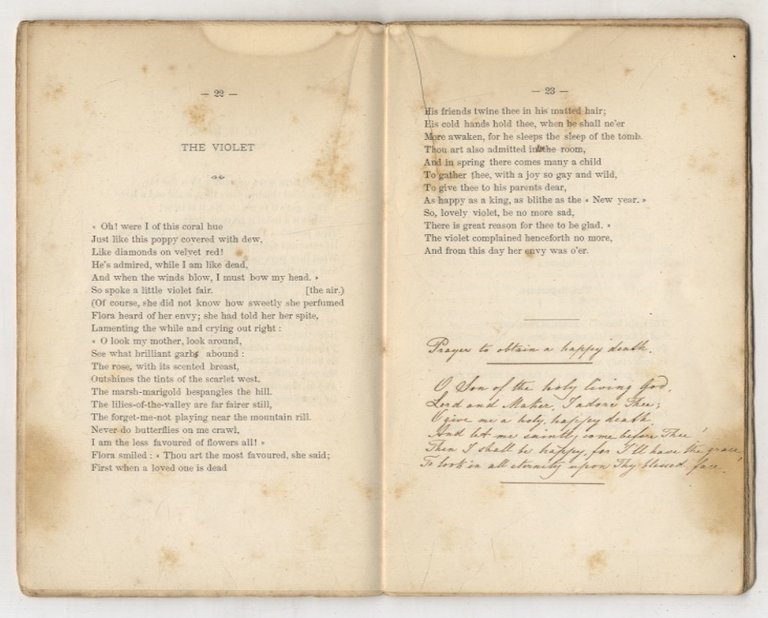 — 22 —
THE VIOLET
« Oh! were I of this coral hue
Just like this poppy covered with dew,
Like diamonds on velvet red!
He's admired, while I am like dead,
And when the winds blow, I must bow my head. »
So spoke a little violet fair. [the air.)
(Of course, she did not know how sweetly she perfumed
Flora heard of her envy; she had told her her spite,
Lamenting the while and crying out right :
« O look my mother, look around,
See what brilliant garbs abound :
The rose, with its scented breast,
Outshines the tints of the scarlet west.
The marsh-marigold bespangles the hill.
The lilies-of-the-valley are far fairer still,
The forget-me-not playing near the mountain rill.
Never do butterflies on me crawl,
I am the less favoured of flowers all! »
Flora smiled : « Thou art the most favoured, she said;
First when a loved one is dead
— 23 —
His friends twine thee in his matted hair;
His cold hands hold thee, when he shall ne'er
More awaken, for he sleeps the sleep of the tomb.
Thou art also admitted into the room,
And in spring there comes many a child
To gather thee, with a joy so gay and wild,
To give thee to his parents dear,
As happy as a king, as blithe as the « New year. »
So, lovely violet, be no more sad,
There is great reason for thee to be glad. »
The violet complained henceforth no more,
And from this day her envy was o'er.
Prayer to obtain a happy death.
O, Son of the holy living God,
Lord and Maker, I adore Thee;
O give me a holy, happy death
And let me saintly come before Thee!
Then I shall be happy, for I'll have the grace
To look in all eternity upon Thy blessed face!